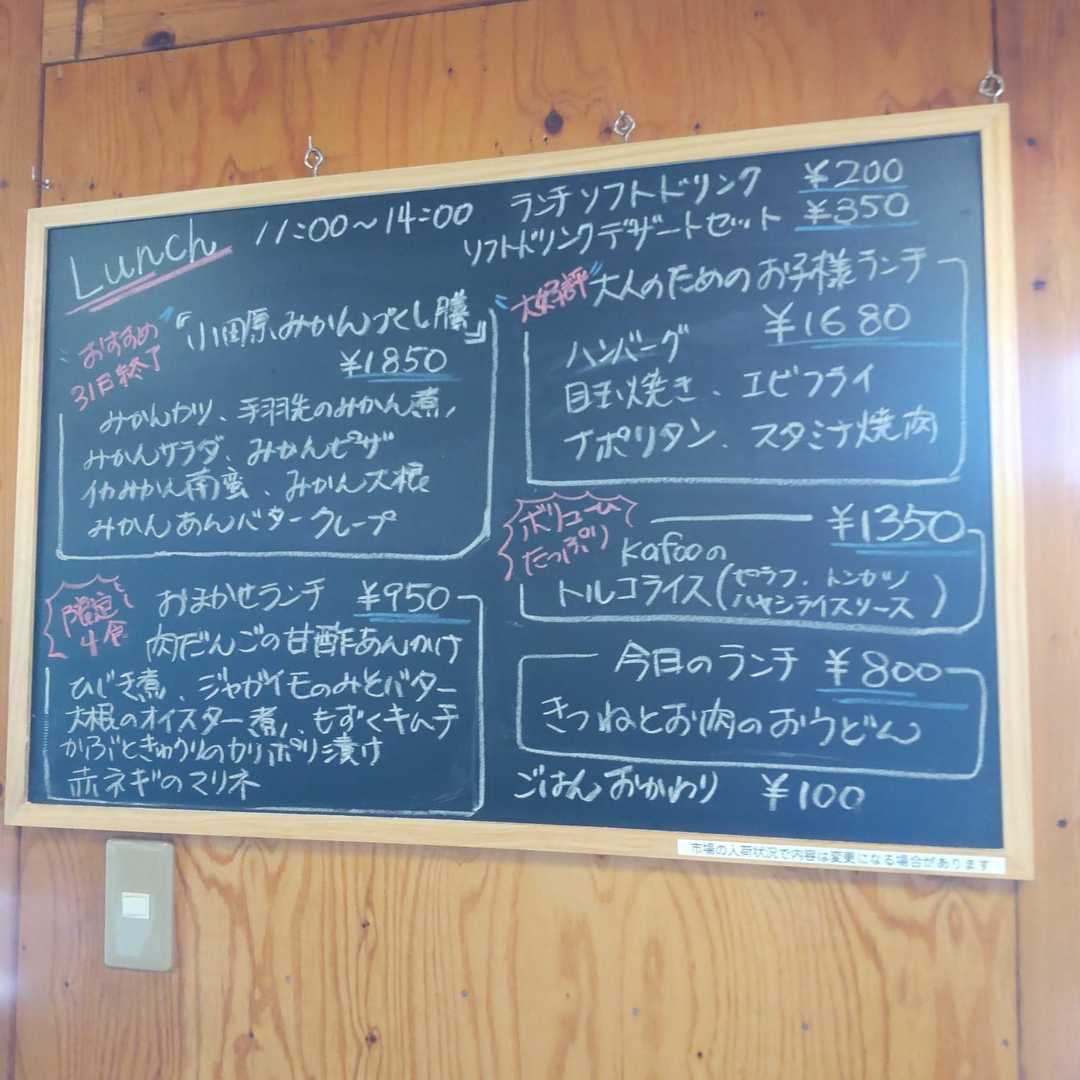 Lunch 11:00～14:00
ランチソフトドリンク ¥200
ソフトドリンクデザートセット ¥350
おすすめ
31日終了
『小田原みかんづくし膳』
¥1850
みかんカツ、手羽先のみかん煮、
みかんサラダ、みかんピザ
イカみかん南蛮、みかん大根
みかんあんバタークレープ
限定
4食
おまかせランチ ¥950
肉だんごの甘酢あんかけ
ひじき煮、ジャガイモのみそバター
大根のオイスター煮、もずくキムチ
かぶときゅうりのカリポリ漬け
赤ネギのマリネ
大好評 大人のためのお子様ランチ
¥1680
ハンバーグ
目玉焼き、エビフライ
ナポリタン、スタミナ焼肉
ボリューム
たっぷり
¥1350
kafooの
トルコライス(ピラフ、トンカツ
ハヤシライスソース)
今日のランチ ¥800
きつねとお肉のおうどん
ごはんおかわり ¥100
市場の入荷状況で内容は変更になる場合があります